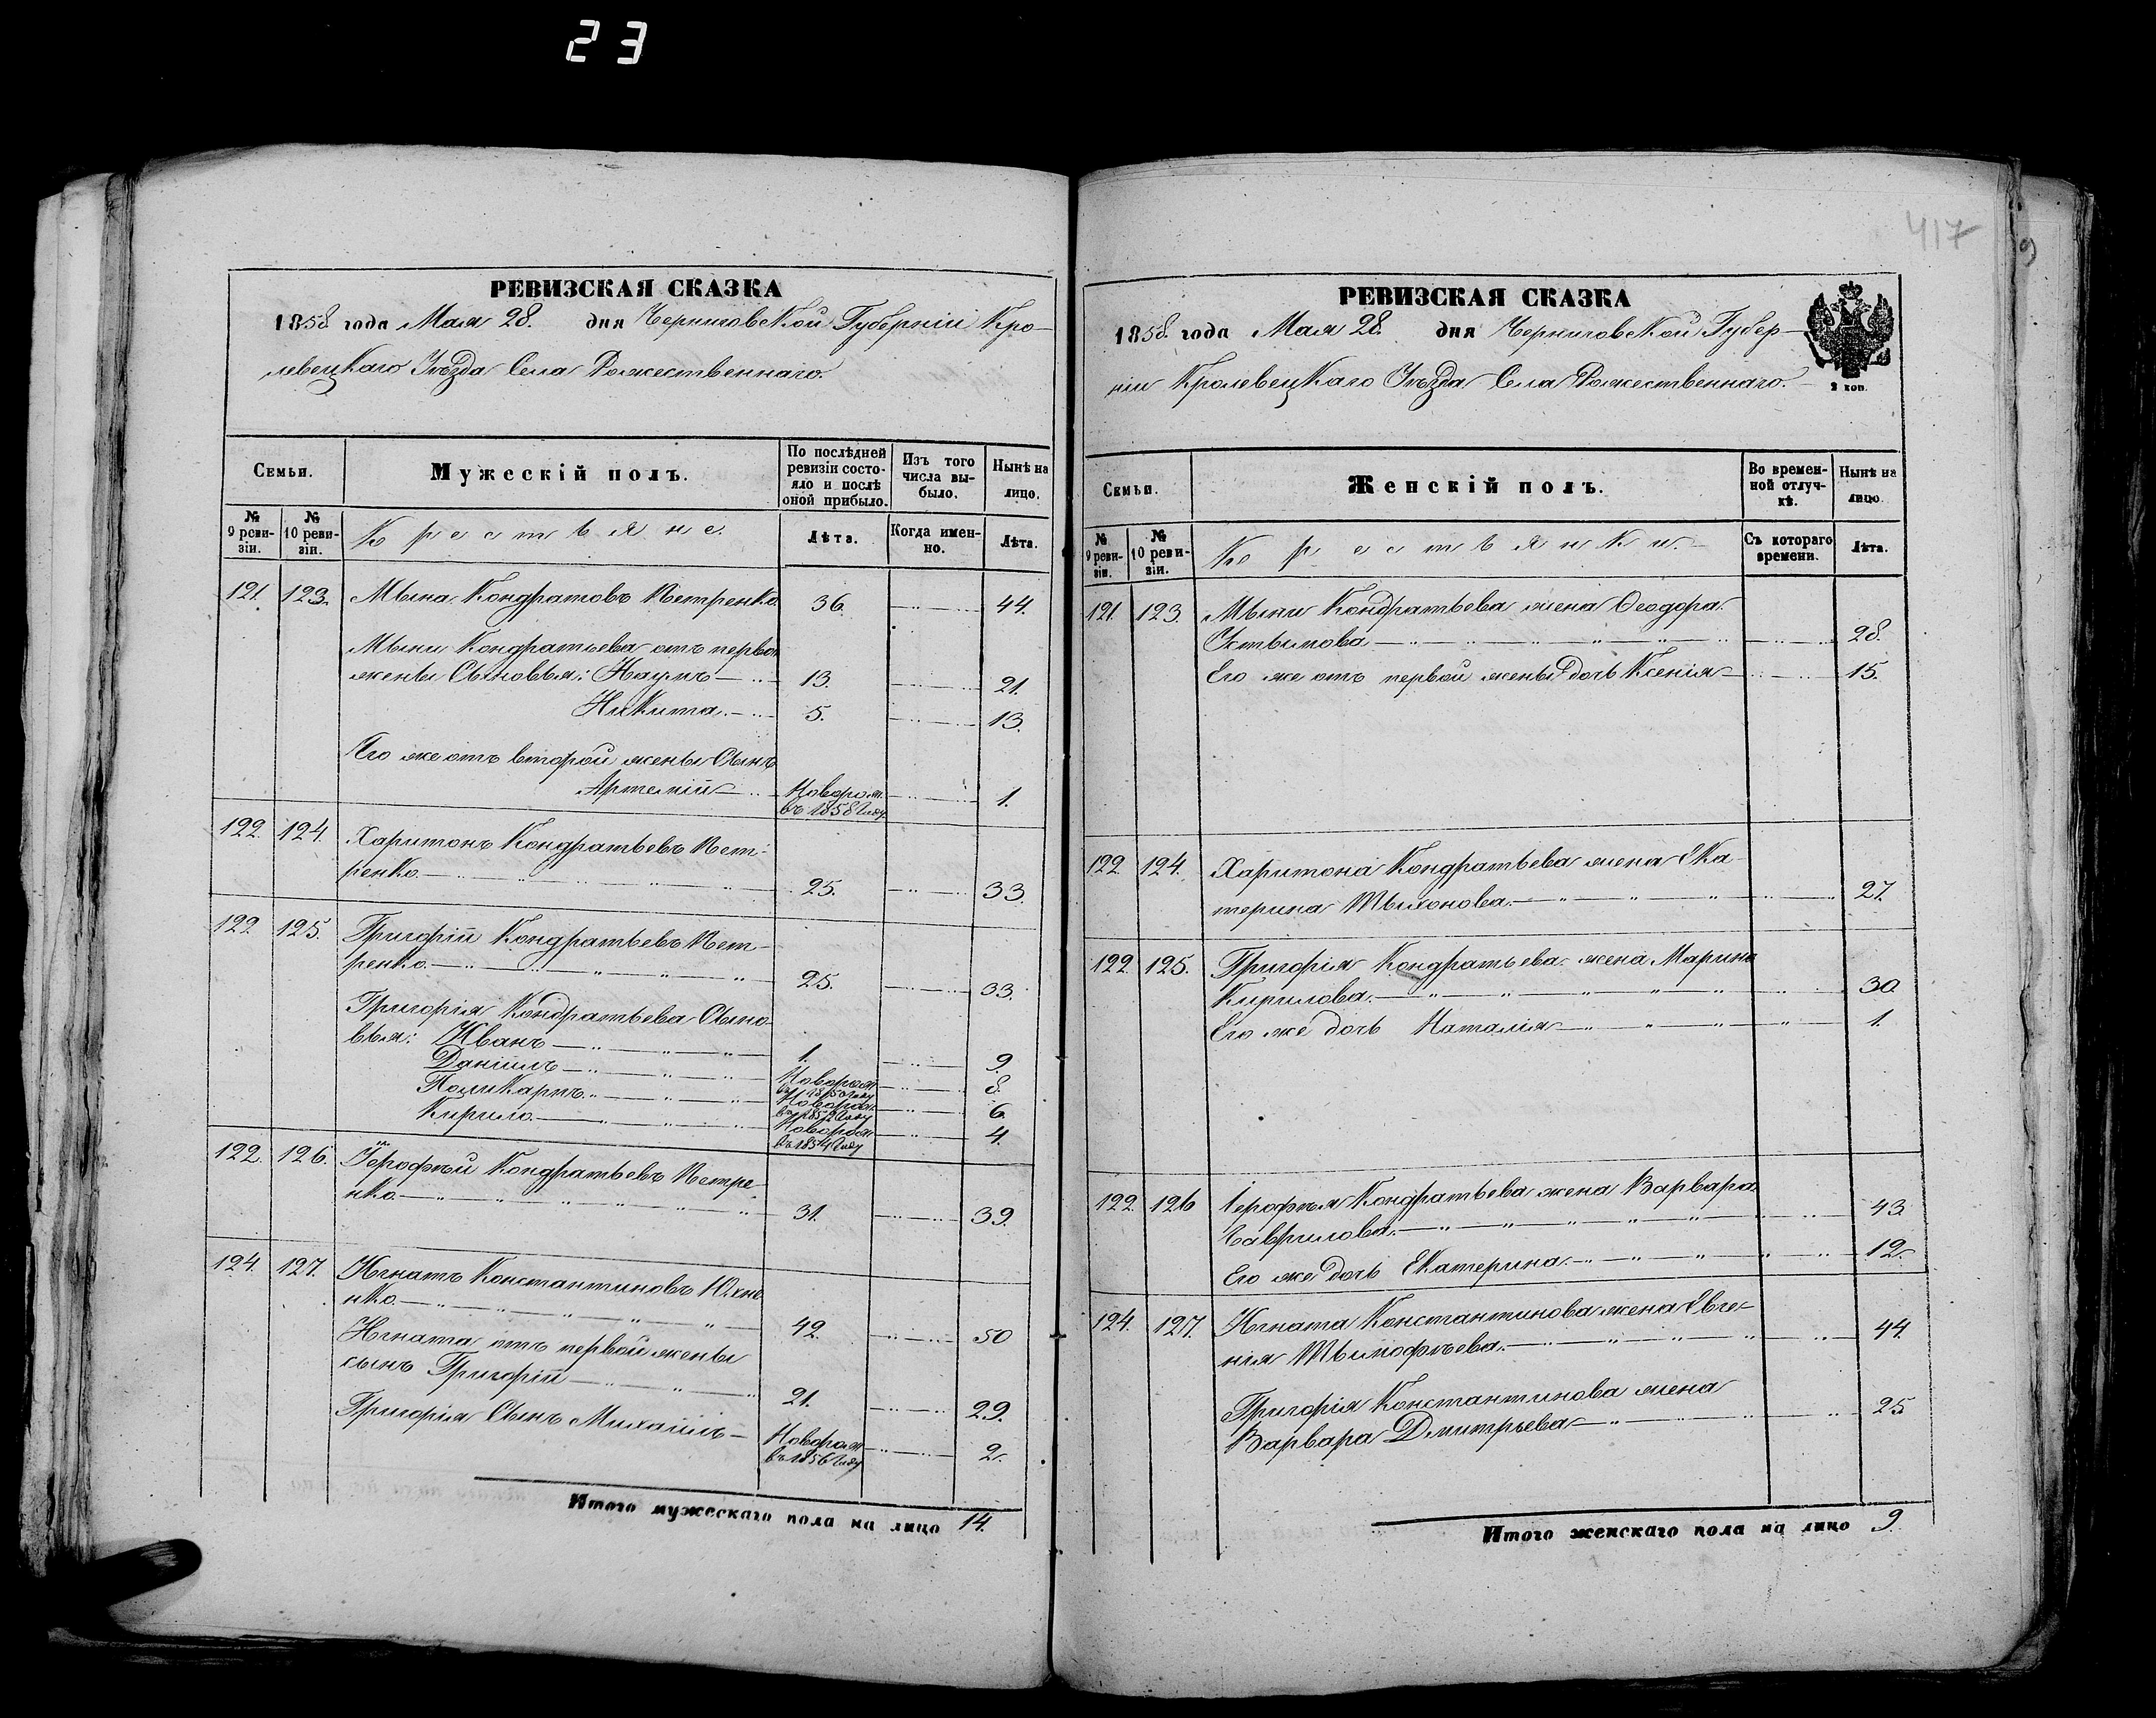 23
417
РЕВИЗСКАЯ СКАЗКА
1858 года Мая 28. дня Черниговской Губерніи Кро-
левецкаго Уѣзда Села Рожественнаго.
Семьи.
Мужескій полъ.
По послѣдней ревизіи состо-
яло и послѣ оной прибыло.
Изъ того числа вы-
было.
Нынѣ на лицо.
№ 9 реви-
зіи.
№ 10 реви-
зіи.
Крестьяне.
Лѣта.
Когда имен-
но.
Лѣта.
121. 123. Мына Кондратовъ Петренко. 36. 44.
Мыни Кондратьева отъ первой
жены Сыновья: Наумъ 13. 21.
Никита. 5. 13.
Его же отъ второй жены Сынъ
Артемій Новорож. 1.
въ 1858 Году
122. 124. Харитонъ Кондратьевъ Пет-
ренко. 25. 33.
122. 125. Григорій Кондратьевъ Пет-
ренко. 25. 33.
Григорія Кондратьева Сыно-
вья: Иванъ 1. 9.
Даніилъ Новорож. въ 1850 Году 8.
Поликарпъ. Новорож. въ 1852 Году 6.
Кирило. Новорож. въ 1854 Году 4.
122. 126. Іерофѣй Кондратьевъ Петре-
нко 31. 39.
124. 127. Игнатъ Константиновъ Юхне
нко. 42. 50
Игната отъ первой жены
сынъ Григорій 21. 29.
Григорія Сынъ Михаилъ Новорож. 2.
въ 1856 Году
Итого мужескаго пола на лицо 14.
РЕВИЗСКАЯ СКАЗКА
1858. года Мая 28. дня Черниговской Губер-
ніи Кролевецкаго Уѣзда Села Рожественнаго.
2 коп.
Семьи.
Женскій полъ.
Во времен-
ной отлуч-
кѣ.
Нынѣ на лицо.
№ 9 реви-
зіи.
№ 10 реви-
зіи.
Крестьянки.
Съ котораго времени.
Лѣта.
121. 123. Мыни Кондратьева жена Ѳеодора
Устымова 28.
Его же отъ первой жены дочь Ксенія 15.
122. 124. Харитона Кондратьева жена Ека-
терина Тыхонова. 27.
122. 125. Григорія Кондратьева жена Марина
Кирилова. 30.
Его же дочь Наталія 1.
122. 126 Іерофѣя Кондратьева жена Варвара
Гаврилова. 43.
Его же дочь Екатерина. 12.
124. 127. Игната Константинова жена Евге-
нія Тымофѣева. 44.
Григорія Константинова жена
Варвара Дмитрьева 25.
Итого женскаго пола на лицо 9.